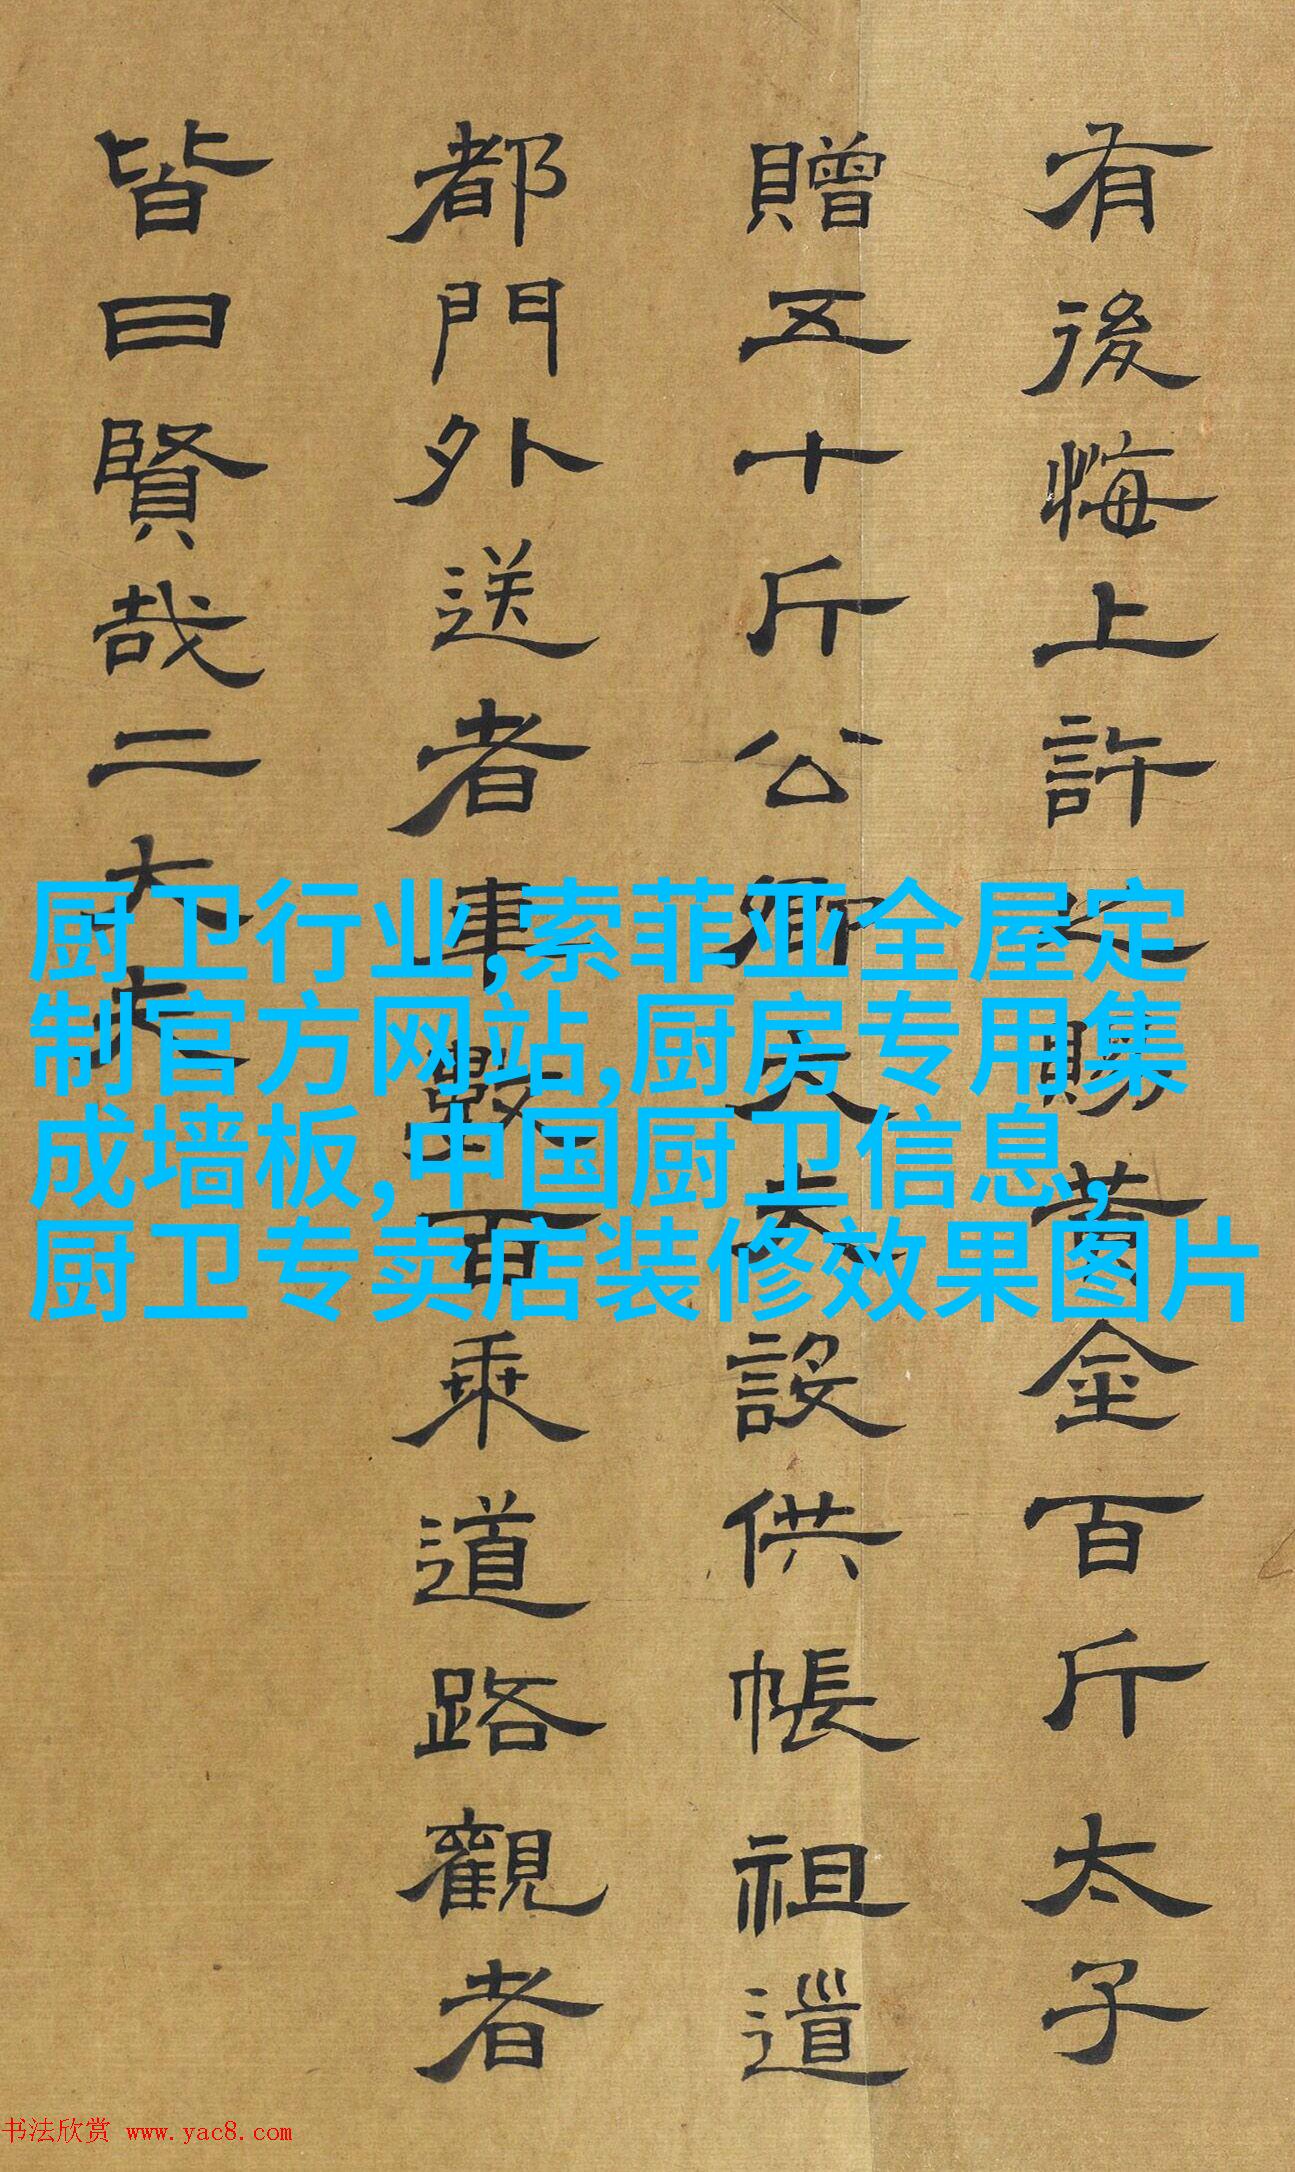 有後悔上許之賜黃金百斤太子
贈五十斤公卿大夫設供帳祖道
都門外送者車數百乘道路觀者
皆曰賢哉二大夫
厨卫行业,索菲亚全屋定
制官方网站,厨房专用集
成墙板,中国厨卫信息,
厨卫专卖店装修效果图片
书法欣赏 www.yac8.com